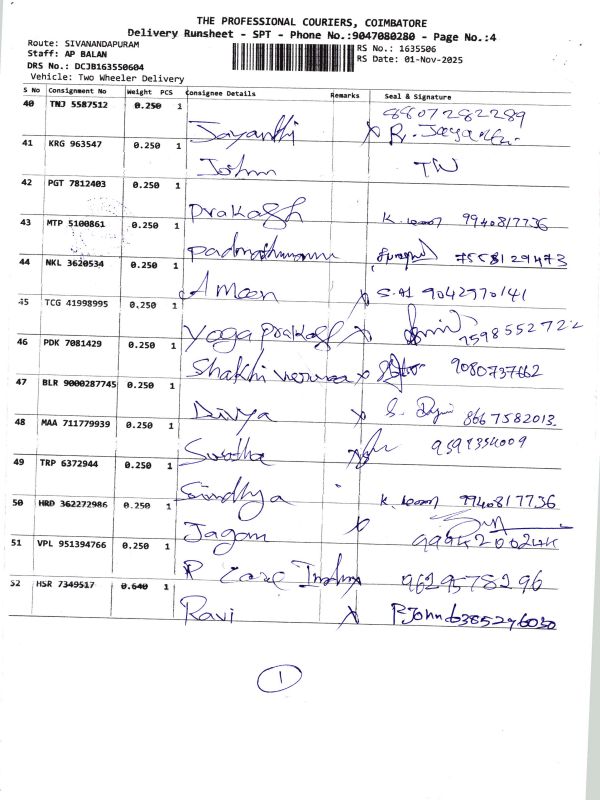 THE PROFESSIONAL COURIERS, COIMBATORE
Delivery Runsheet - SPT - Phone No.:9047080280 - Page No.:4
Route: SIVANANDAPURAM
Staff: AP BALAN
DRS No.: DCJB163550604
Vehicle: Two Wheeler Delivery
RS No.: 1635506
RS Date: 01-Nov-2025
S No Consignment No Weight PCS Consignee Details Remarks Seal & Signature
40 TNJ 5587512 0.250 1 Jayanthi x 8807282289
R. Jayanthi
41 KRG 963547 0.250 1 Joshna
42 PGT 7812403 0.250 1 Prakash 9940817736
43 MTP 5100861 0.250 1 7558129473
44 NKL 3620534 0.250 1 Ameen x 9042770141
45 TCG 41998995 0.250 1 Yoga Prakash x 7598552722
46 PDK 7081429 0.250 1 Shakthi x
47 BLR 9000287745 0.250 1 Divya x S. 8667582013
48 MAA 711779939 0.250 1 x
49 TRP 6372944 0.250 1 Sindhya 9940817736
50 HRD 362272986 0.250 1 Jagan x
51 VPL 951394766 0.250 1 R Care 9629578296
52 HSR 7349517 0.640 1 Ravi x P John 6385276030
1